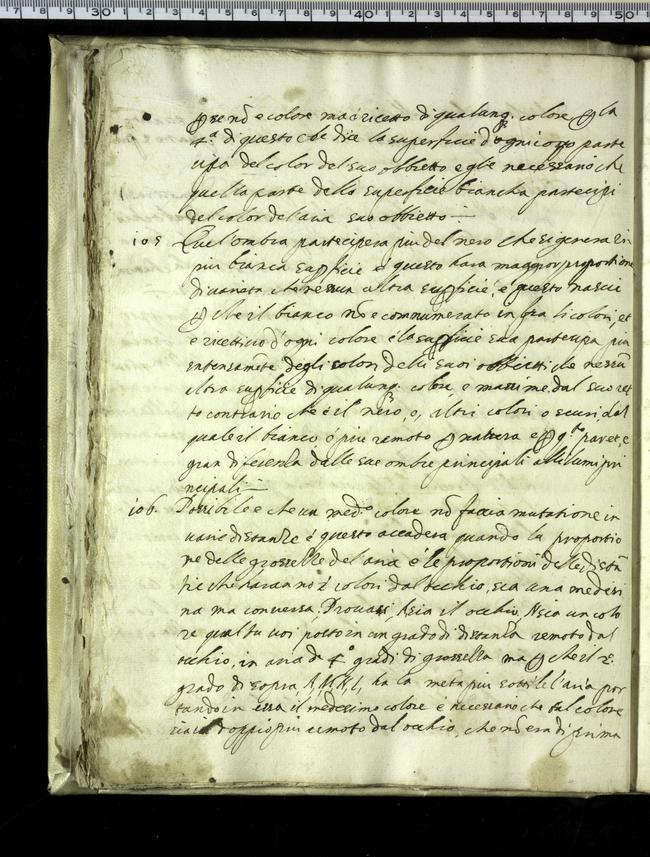 30 40 50
se nō e colore ma ricetto di qualunq. colore la
4.a di questo che dice la superficie d'ogni corpo parte
cipa del color del suo obbietto egle necessario che
quella parte della superficie biancha partecipi
del color del'aria suo obbietto
105 Quel'ombra participera piu del nero che si genera in
piu bianca supficie e questo hara maggior proportione
di varieta che nessun altra supficie, e questo nascie
che il bianco nō e connumerato in fra li colori, et
e ricettivo d'ogni colore e la supficie sua partecipa piu
intensamēte degli colori delli suoi obbietti che nessun
altra supficie di qualunq. colore e massime dal suo ret
to contrario che è il nero, o, altri colori o scuri, dal
quale il bianco, è piu remoto natura e q.to pare, e
gran diferenza dalle sue ombre principali alli lumi pri
ncipali
106. Possibile e che un med.o colore nō faccia mutatione in
varie distantie e questo accadera quando la proportio
ne delle grossezze del'aria e le proportioni delle distā
tie che haranno i colori dal occhio, sia una medesi
ma ma conversa, Provasi, A sia il occhio, H sia un colo
re qual tu voi posto in un grado di distanza remoto dal
occhio, in aria di 4.o gradi di grossezza ma che il 2.
grado di sopra, A, M, N, L, ha la meta piu sottile l'aria por
tando in essa il medesimo colore e necessario che tal colore
sia doppio piu remoto dal occhio, che nō era di prima